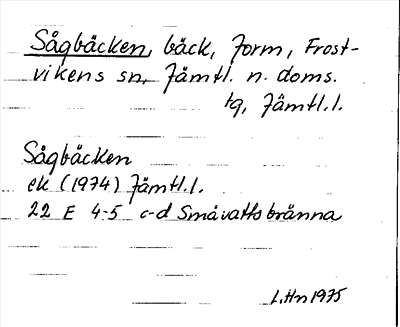 Sågbäcken, bäck, Form, Frost-
vikens sn, Jämtl. n. doms.
tg, Jämtl.l.
Sågbäcken
ek (1974) Jämtl.l.
22 E 4-5 c-d Småvattsbränna
L.Hn 1975